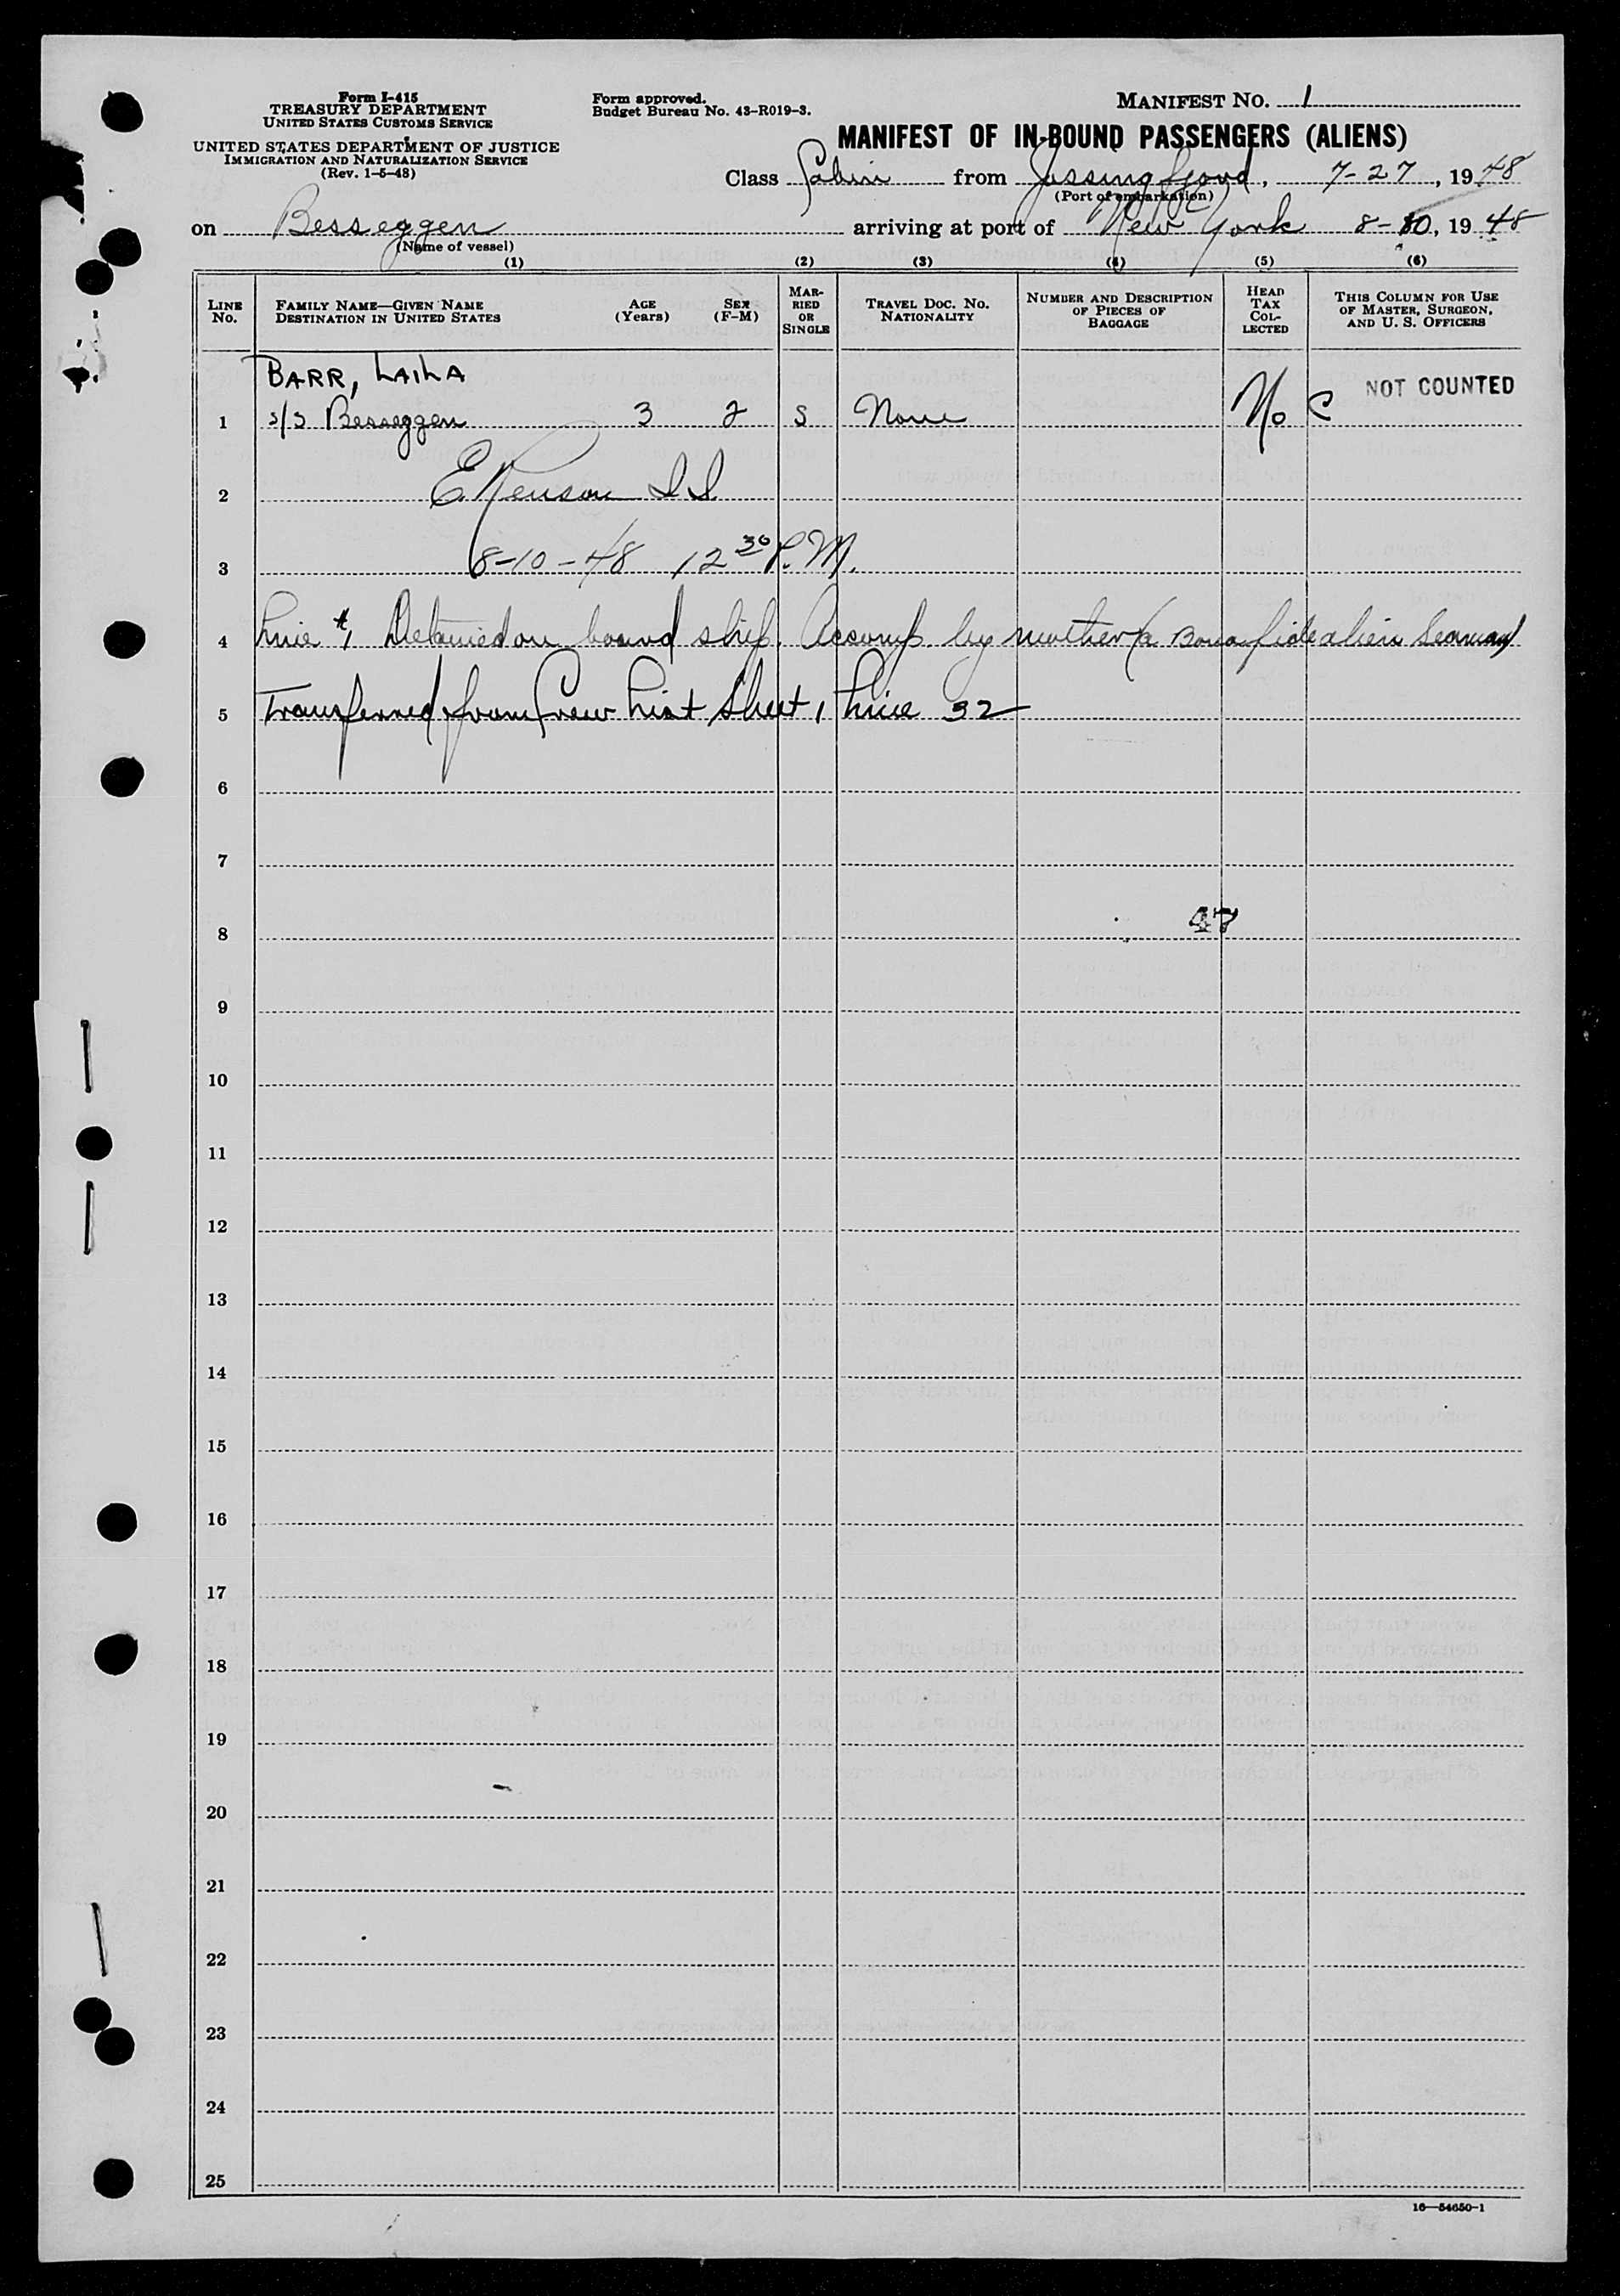 Form I-415
TREASURY DEPARTMENT
UNITED STATES CUSTOMS SERVICE
UNITED STATES DEPARTMENT OF JUSTICE
IMMIGRATION AND NATURALIZATION SERVICE
(Rev. 1-5-48)
Form approved.
Budget Bureau No. 43-R019-3.
MANIFEST NO. 1
MANIFEST OF IN-BOUND PASSENGERS (ALIENS)
Class Cabin from Jossingfjord, 7-27, 1948
(Port of embarkation)
on Besseggen arriving at port of New York 8-10, 1948
(Name of vessel)
(1) (2) (3) (4) (5) (6)
LINE No. FAMILY NAME—GIVEN NAME DESTINATION IN UNITED STATES AGE (Years) SEX (F-M) MARRIED OR SINGLE TRAVEL DOC. NO. NATIONALITY NUMBER AND DESCRIPTION OF PIECES OF BAGGAGE HEAD TAX COLLECTED THIS COLUMN FOR USE OF MASTER, SURGEON, AND U. S. OFFICERS
BARR, LAILA NOT COUNTED
1 s/s Besseggen 3 f S None No C
2 E
3 8-10-48 12 30 P.M.
4 Line #1 Detained on board ship. Accomp. by mother (a Bona fide alien Seaman)
5 Transferred from Crew List Sheet 1 Line 32
6
7
8 47
9
10
11
12
13
14
15
16
17
18
19
20
21
22
23
24
25
16—54650-1